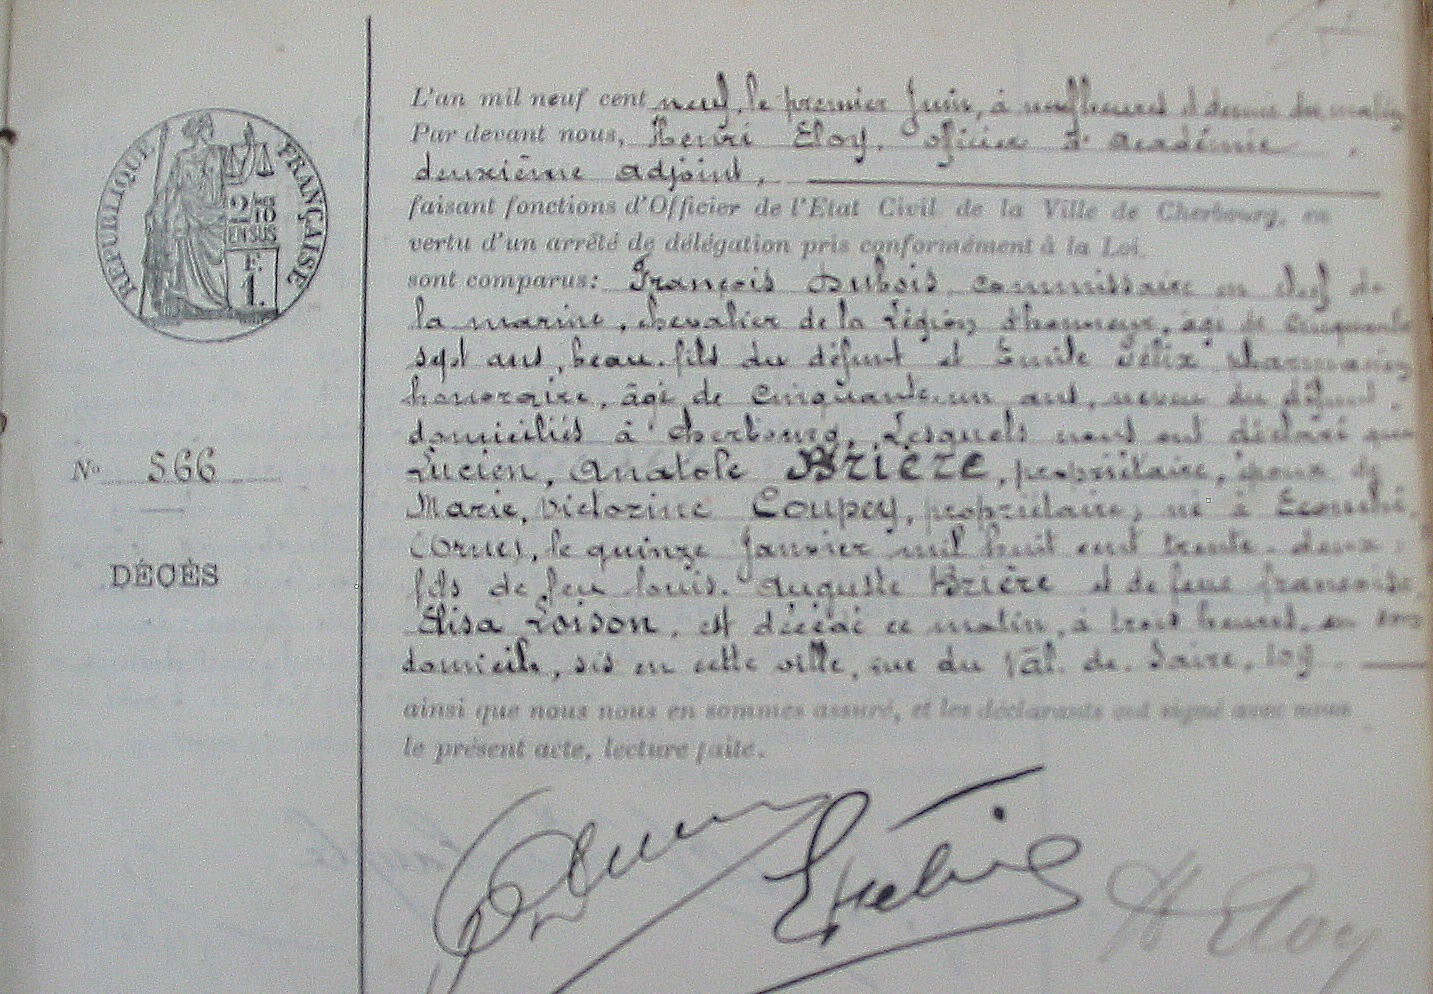 RÉPUBLIQUE FRANÇAISE
2/10 EN SUS
F.
1.
L'an mil neuf cent neuf, le premier Juin, à neuf heures et demie du matin
Par devant nous, Henri Eloy, officier d'académie,
deuxième adjoint,
faisant fonctions d'Officier de l'Etat Civil de la Ville de Cherbourg, en
vertu d'un arrêté de délégation pris conformément à la Loi.
sont comparus: François Dubois, commissaire en chef de
la marine, chevalier de la Légion d'honneur, âgé de cinquante
sept ans, beau-fils du défunt et Emile Félix pharmacien
honoraire, âgé de cinquante-un ans, neveu du défunt,
domiciliés à Cherbourg. Lesquels nous ont déclaré que
N° 566
Lucien, Anatole BRIÈRE, propriétaire, époux de
Marie, Victorine Coupey, propriétaire, né à Ecouché
(Orne), le quinze Janvier mil huit cent trente-deux,
DÉCÈS
fils de feu Louis-Auguste Brière et de feue Françoise
Elisa Loison, est décédé ce matin, à trois heures, en son
domicile, sis en cette ville, rue du Val-de-Saire, 109.
ainsi que nous nous en sommes assuré, et les déclarants ont signé avec nous
le présent acte, lecture faite.
H Eloy